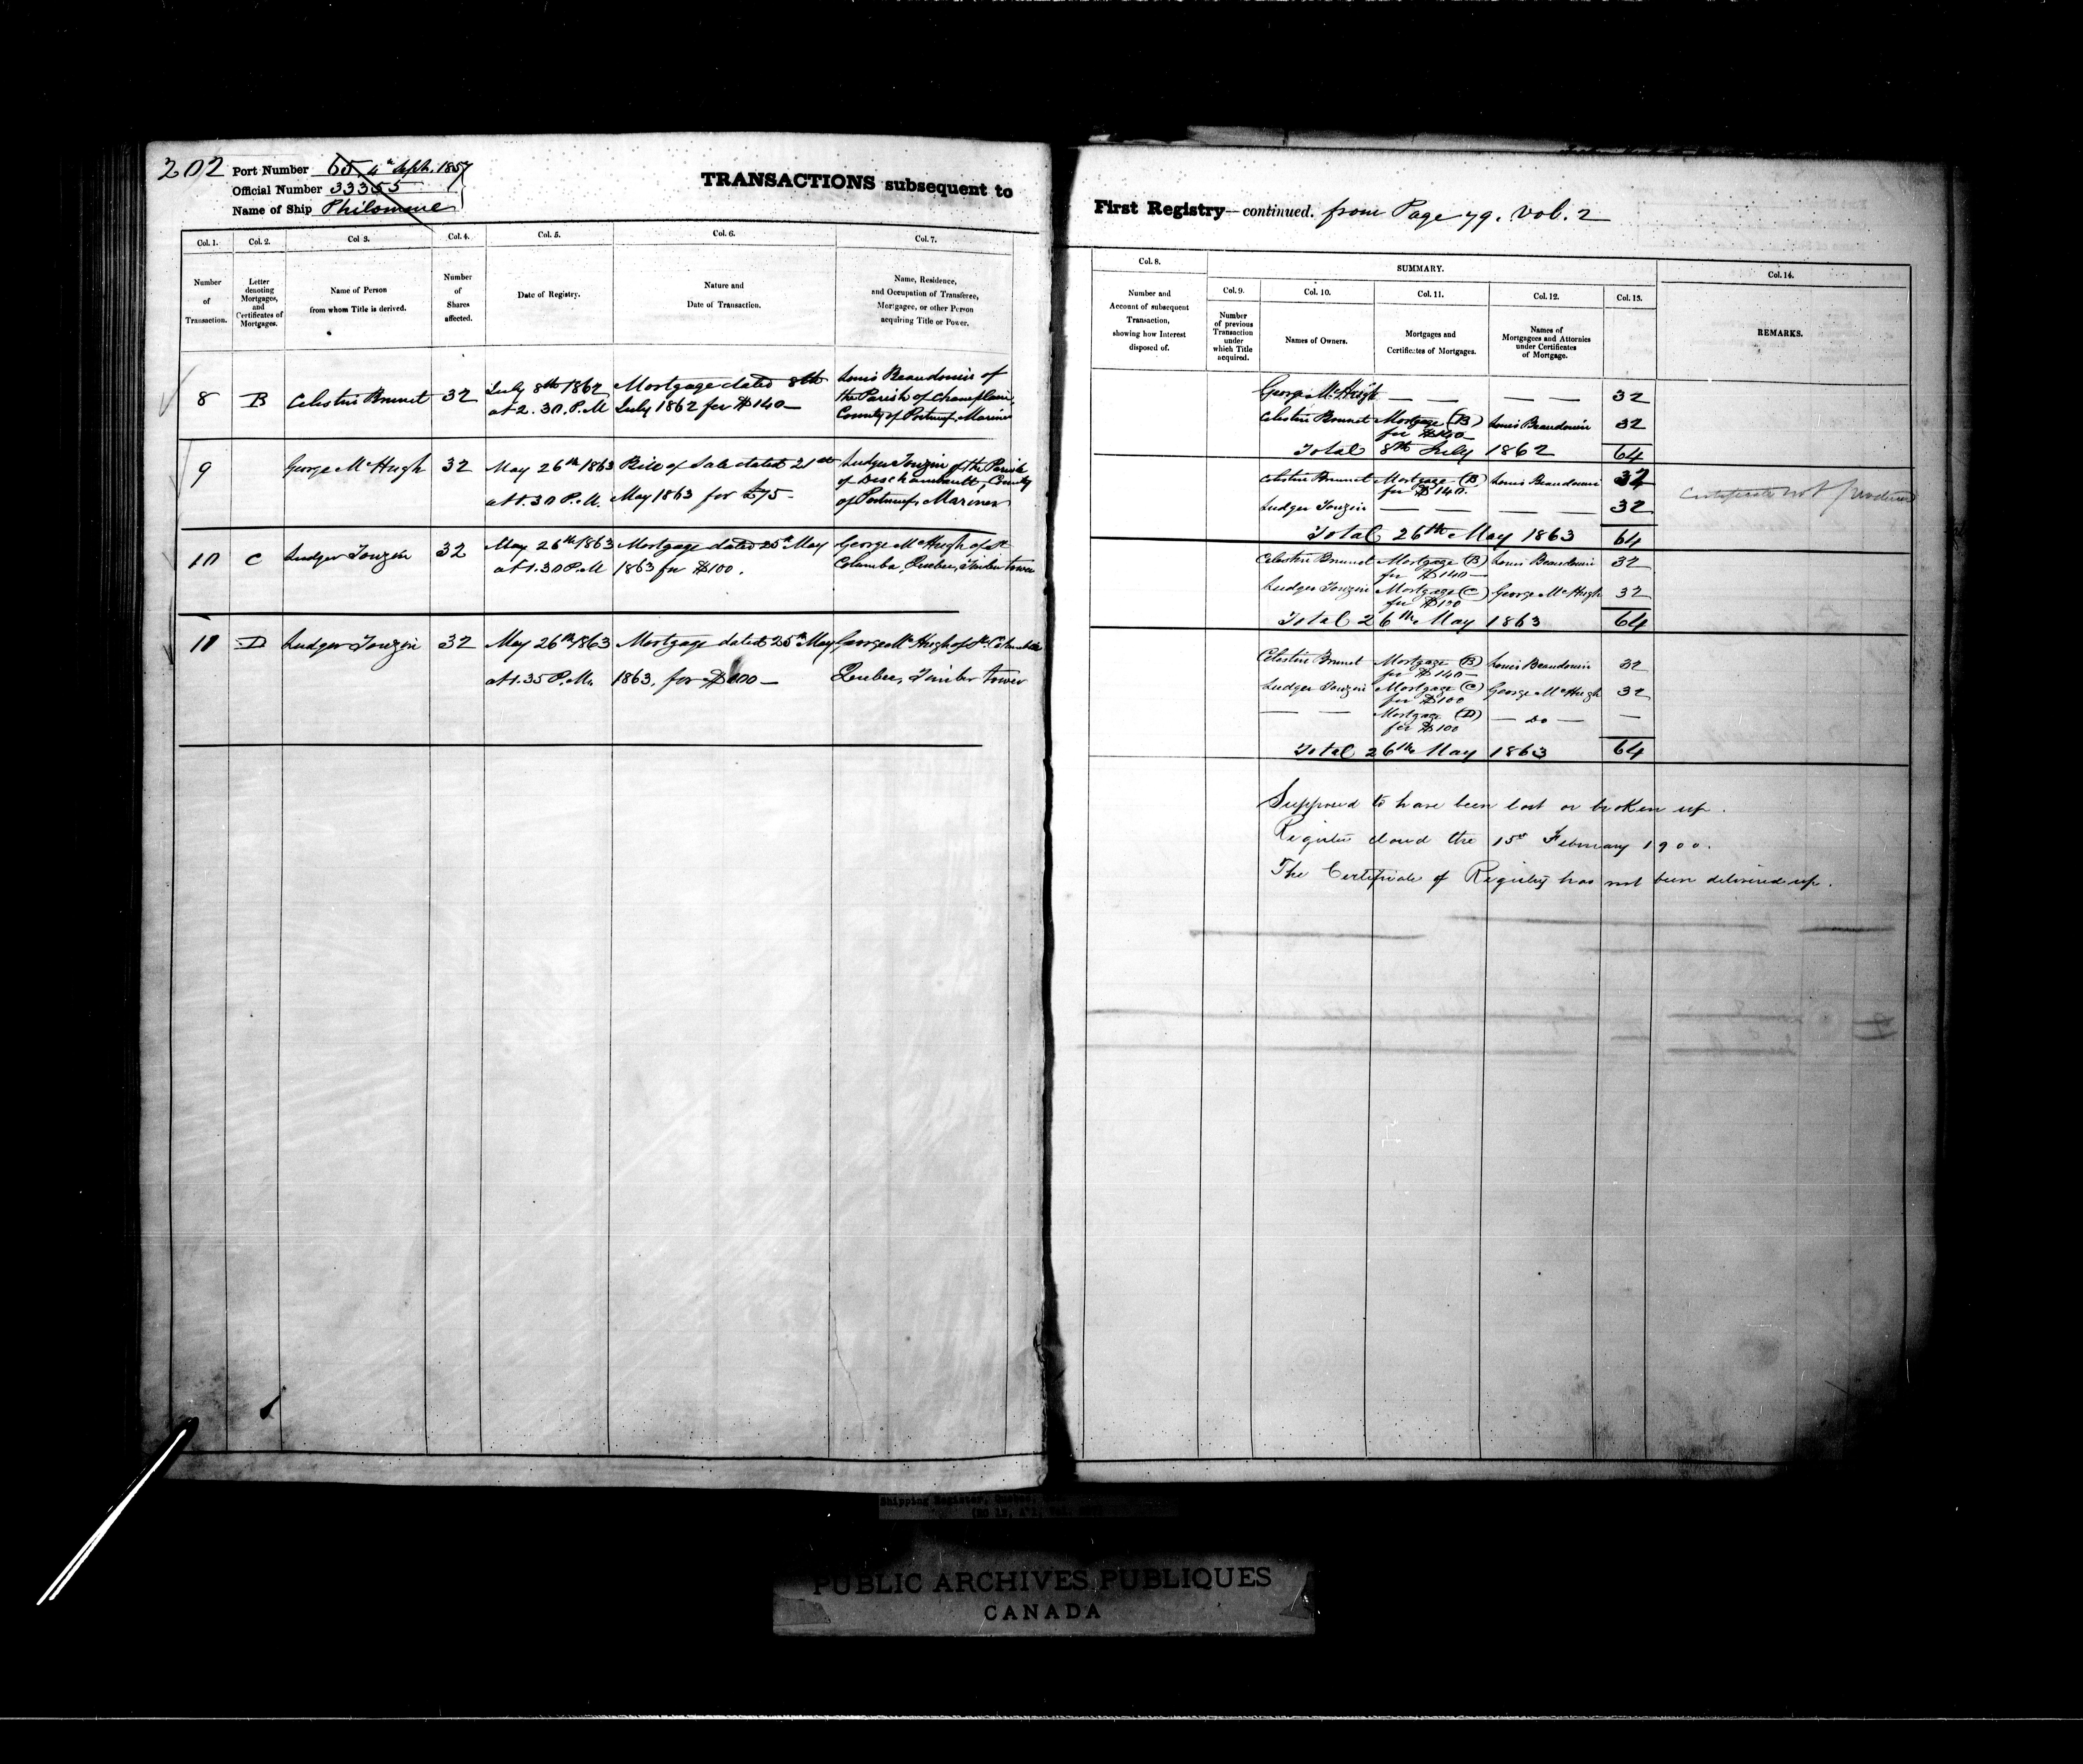 202
Port Number 65 4th Sept. 1857
Official Number 33355
Name of Ship Philomene
TRANSACTIONS subsequent to
Col. 1.
Number
of
Transaction.
Col. 2.
Letter
denoting
Mortgages,
and
Certificates of
Mortgages.
Col 3.
Name of Person
from whom Title is derived.
Col. 4.
Number
of
Shares
affected.
Col. 5.
Date of Registry.
Col. 6.
Nature and
Date of Transaction.
Col. 7.
Name, Residence,
and Occupation of Transferee,
Mortgagee, or other Person
acquiring Title or Power.
8 B Celestin Brunet 32
July 8th 1862
at 2.30 P.M
Mortgage dated 8th
July 1862 for $140—
Louis Beaudouin of
the Parish of Champlain,
County of Portneuf, Mariner
9 George McHugh 32
May 26th 1863
at 1.30 P.M.
Bill of Sale dated 21st
May 1863 for £75-
Ludger Touzin of the Parish
of Deschambault, County
of Portneuf, Mariner
10 C Ludger Touzin 32
May 26th 1863
at 1.30 P.M
Mortgage dated 25th May
1863 for $100.
George McHugh of St
Columba, Quebec, Timber tower
11 D Ludger Touzin 32
May 26th 1863
at 1.35 P.M.
Mortgage dated 25th May
1863, for $100—
George McHugh of St. Columba
Quebec, Timber tower
First Registry—continued. from Page 79. Vol. 2
Col. 8.
Number and
Account of subsequent
Transaction,
showing how Interest
disposed of.
SUMMARY.
Col. 9.
Number
of previous
Transaction
under
which Title
acquired.
Col. 10.
Names of Owners.
Col. 11.
Mortgages and
Certificates of Mortgages.
Col. 12.
Names of
Mortgagees and Attornies
under Certificates
of Mortgage.
Col. 13.
Col. 14.
REMARKS.
George McHugh — — — — 32
Celestin Brunet Mortgage (B) Louis Beaudouin 32
for $140
Total 8th July 1862 64
Celestin Brunet Mortgage (B) Louis Beaudouin 32
for $140.
Certificate not produced
Ludger Touzin — — — — 32
Total 26th May 1863 64
Celestin Brunet Mortgage (B) Louis Beaudouin 32
for $140—
Ludger Touzin Mortgage (C) George McHugh 32
for $100
Total 26th May 1863 64
Celestin Brunet Mortgage (B) Louis Beaudouin 32
for $140—
Ludger Touzin Mortgage (C) George McHugh 32
for $100
— — Mortgage (D) — Do — —
for $100
Total 26th May 1863 64
Supposed to have been lost or broken up.
Register closed the 15th February 1900.
The Certificate of Registry has not been delivered up.
Shipping Register,
PUBLIC ARCHIVES PUBLIQUES
CANADA